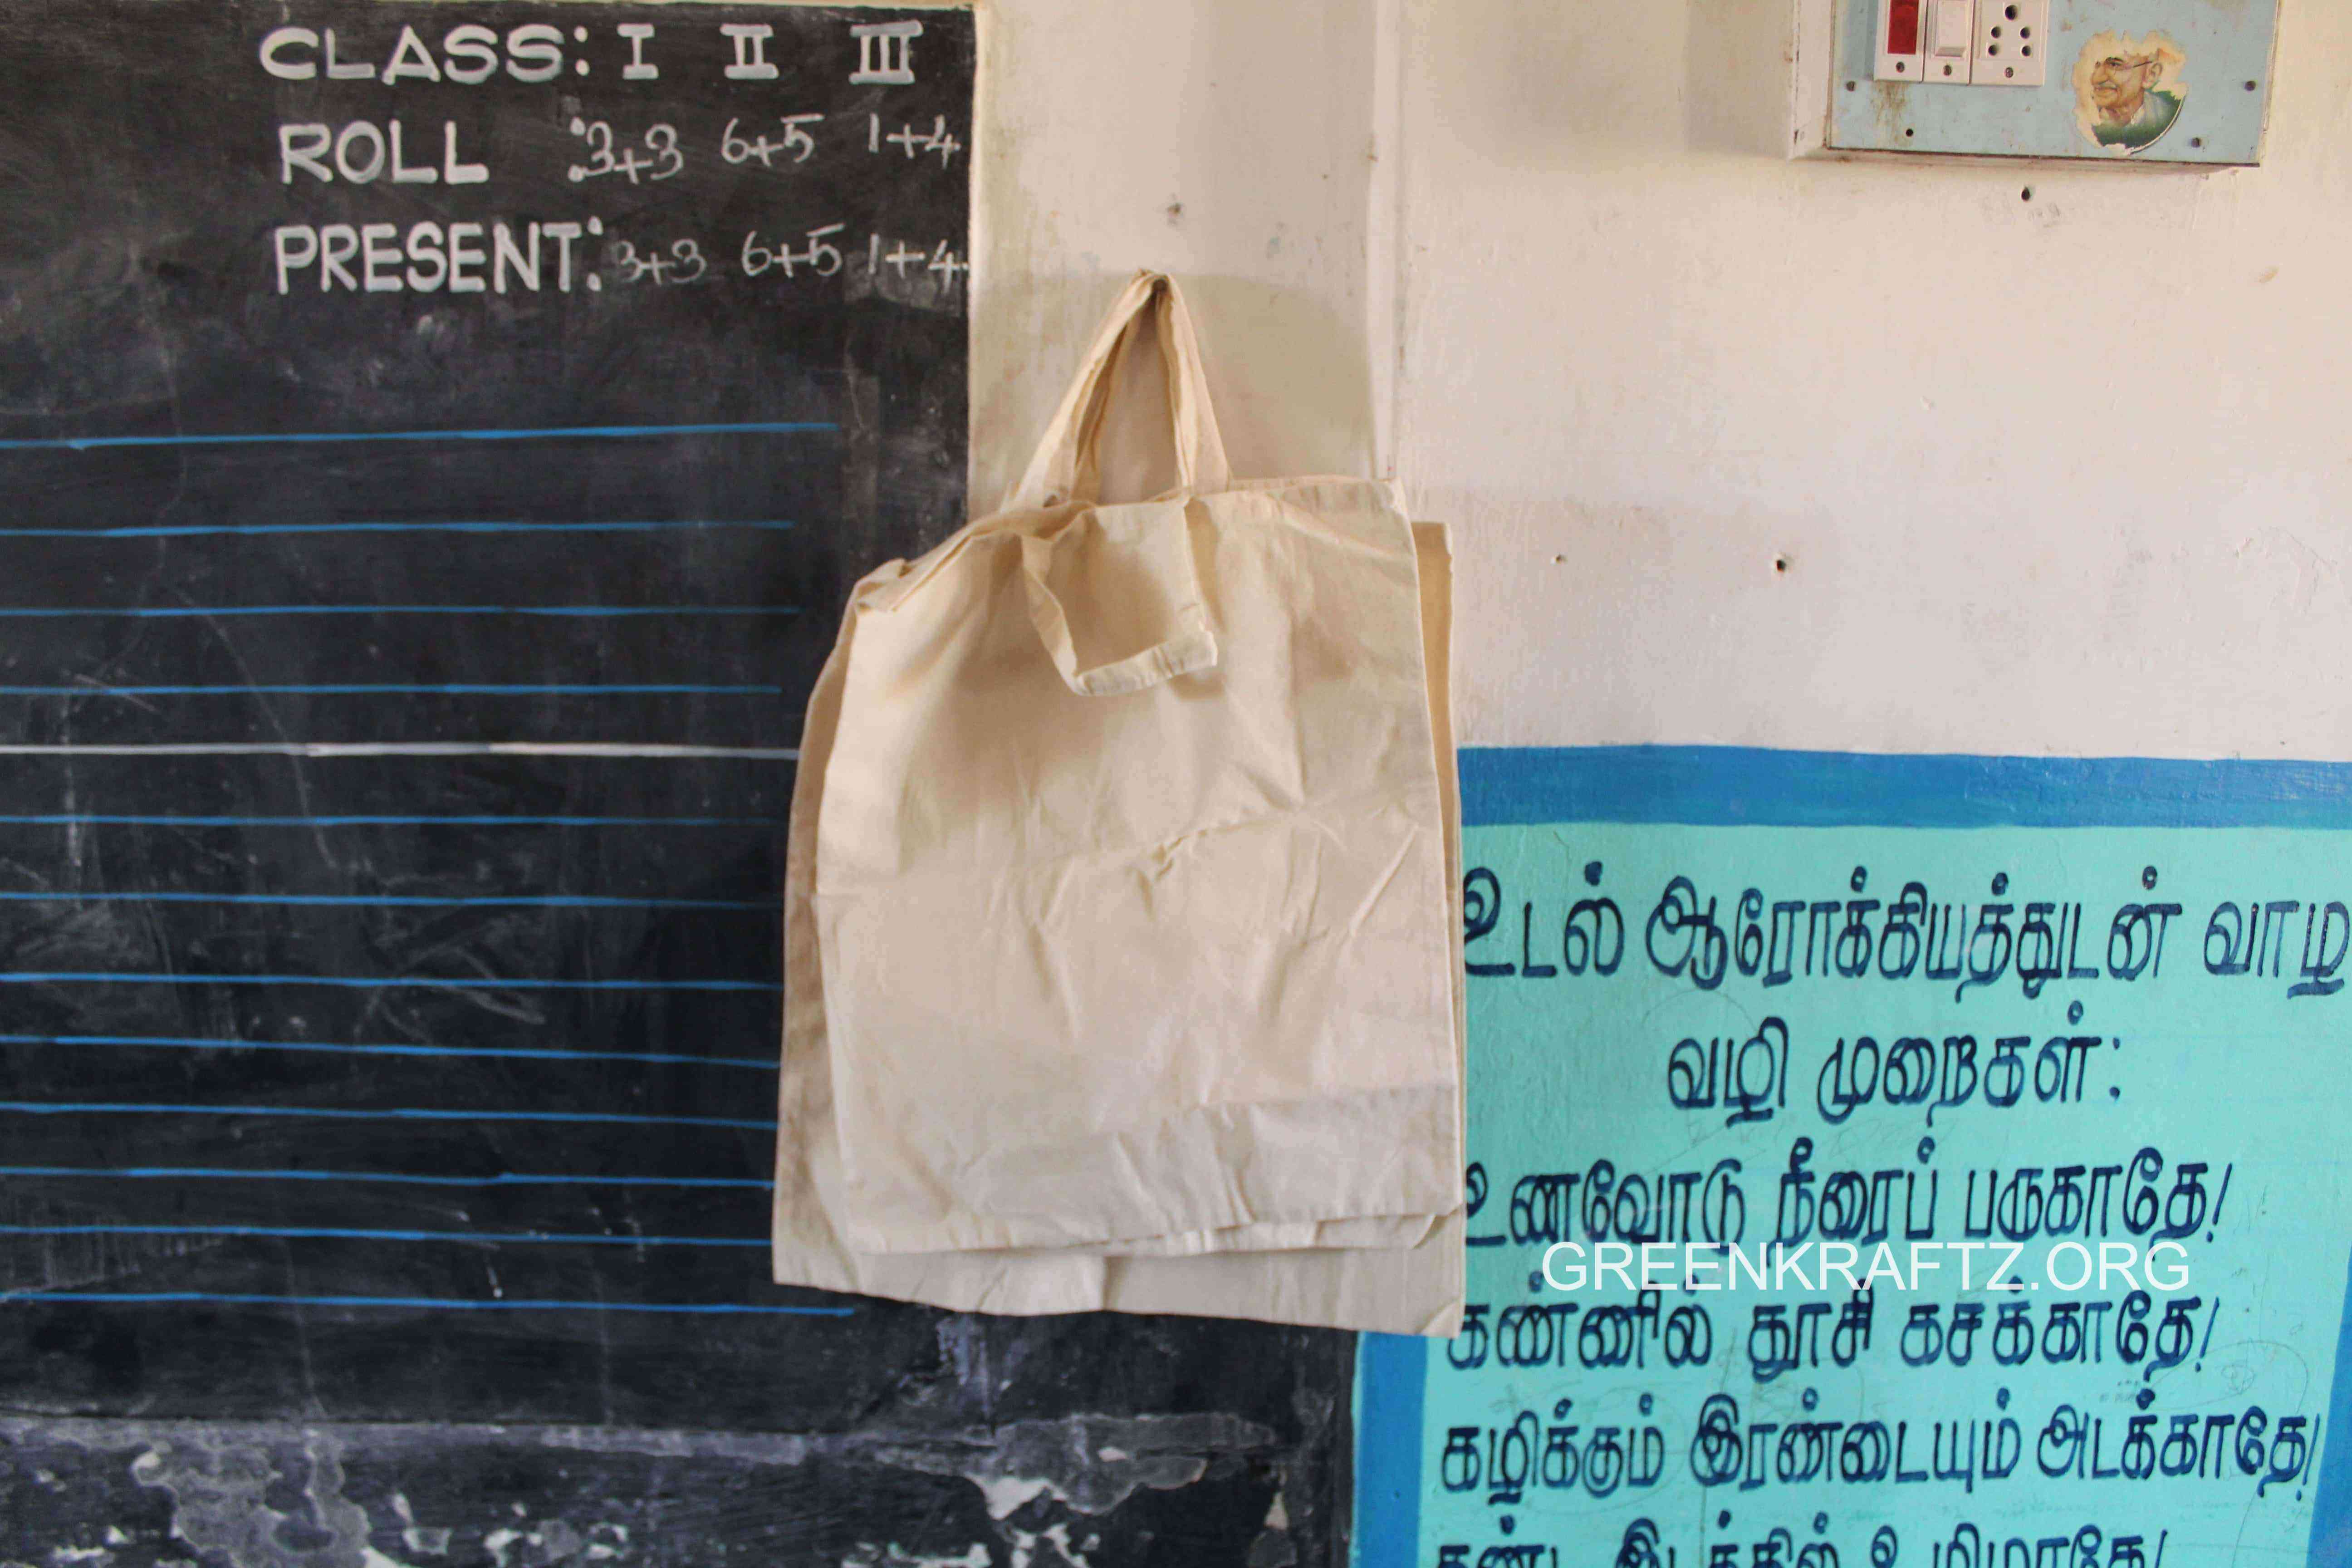 CLASS: I II III
ROLL : 3+3 6+5 1+4
PRESENT: 3+3 6+5 1+4
உடல் ஆரோக்கியத்துடன் வாழ
வழி முறைகள்:
உணவோடு நீரைப் பருகாதே!
GREENKRAFTZ.ORG
கண்ணில் தூசி கசக்காதே!
கழிக்கும் இரண்டையும் அடக்காதே!
கண்ட இடத்தில் உமிழாதே!